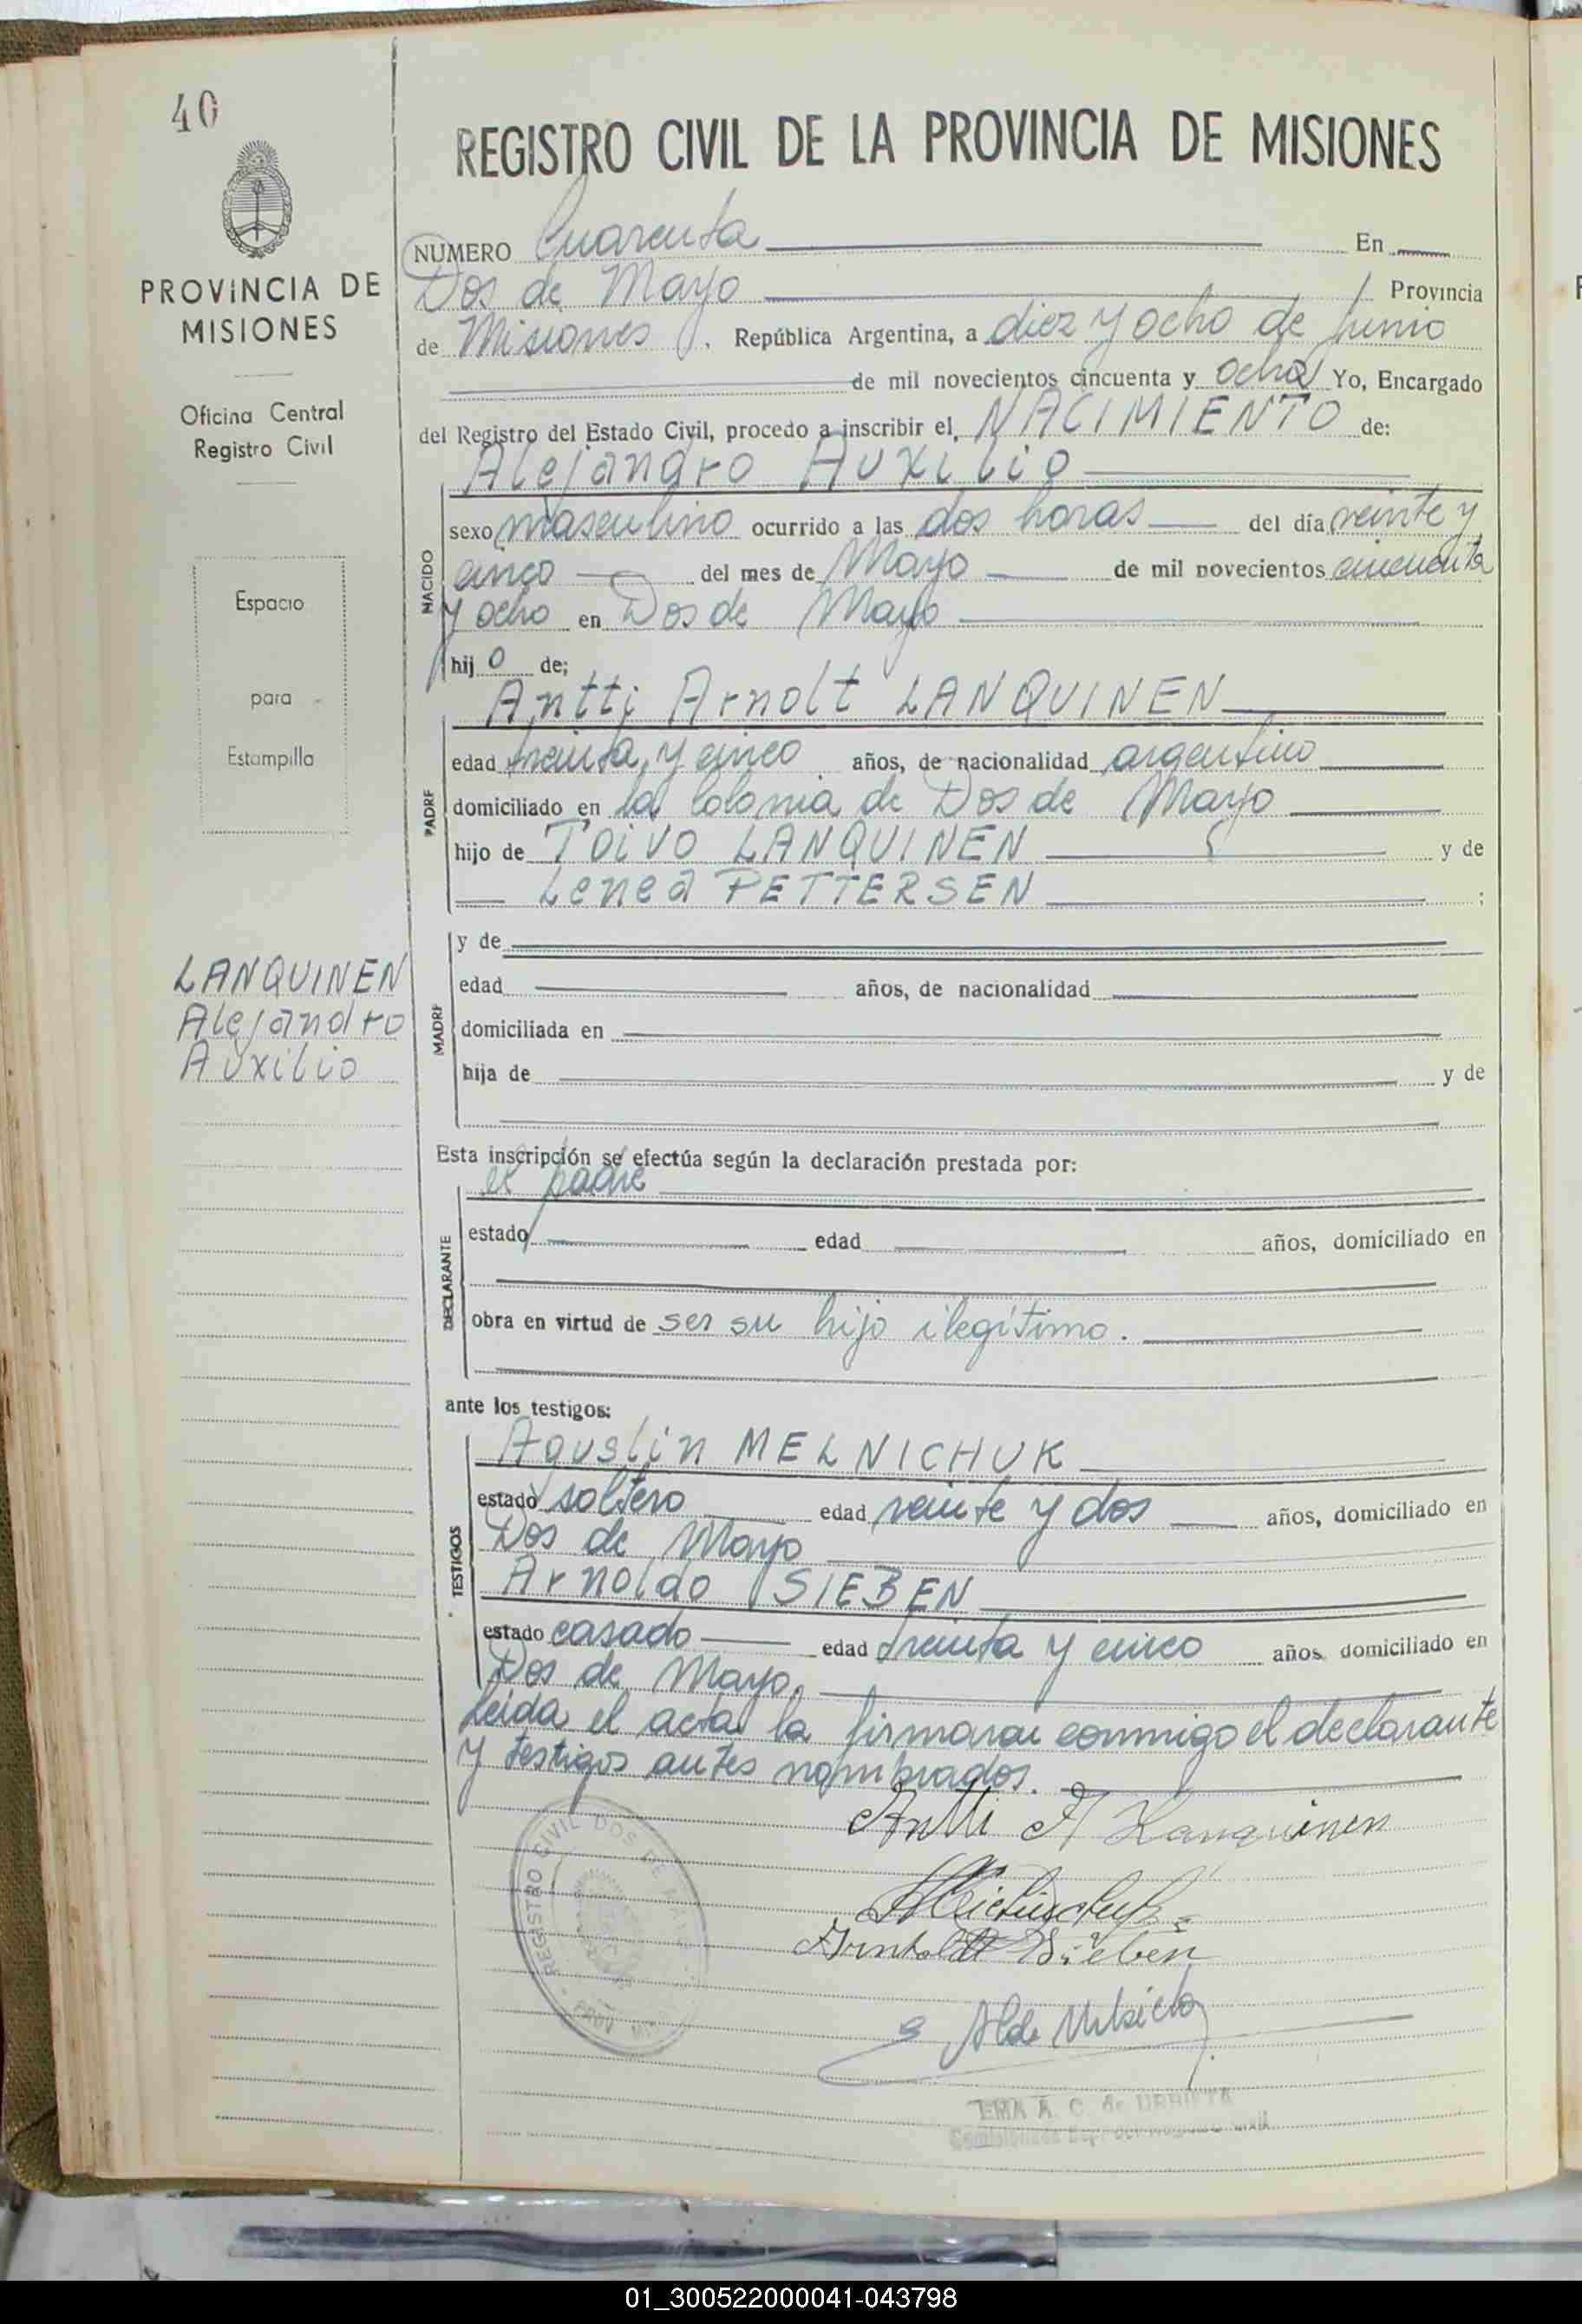 40
REGISTRO CIVIL DE LA PROVINCIA DE MISIONES
PROVINCIA DE
MISIONES
Oficina Central
Registro Civil
Espacio
para
Estampilla
LANQUINEN
Alejandro
Auxilio
NUMERO Cuarenta En
Dos de Mayo Provincia
de Misiones, República Argentina, a diez y ocho de Junio
de mil novecientos cincuenta y ocho Yo, Encargado
del Registro del Estado Civil, procedo a inscribir el, NACIMIENTO de:
Alejandro Auxilio
NACIDO
sexo masculino ocurrido a las dos horas del día veinte y
cinco del mes de Mayo de mil novecientos cincuenta
y ocho en Dos de Mayo
hij o de;
Antti Arnolt LANQUINEN
PADRE
edad treinta y cinco años, de nacionalidad argentino
domiciliado en la Colonia de Dos de Mayo
hijo de Toivo LANQUINEN y de
Lenea PETTERSEN ;
MADRE
y de
edad años, de nacionalidad
domiciliada en
hija de y de
Esta inscripción se efectúa según la declaración prestada por:
el padre
DECLARANTE
estado edad años, domiciliado en
obra en virtud de ser su hijo ilegítimo.
ante los testigos:
Agustin MELNICHUK
TESTIGOS
estado soltero edad veinte y dos años, domiciliado en
Dos de Mayo
Arnoldo SIEBEN
estado casado edad treinta y cinco años domiciliado en
Dos de Mayo.
Leida el acta la firmaron conmigo el declarante
y testigos antes nombrados.
Antti A Lanquinen
Arnholdt Sieben
REGISTRO CIVIL DOS DE MAYO
PROV MIS
EMA A. C. de URRUTA
01_300522000041-043798